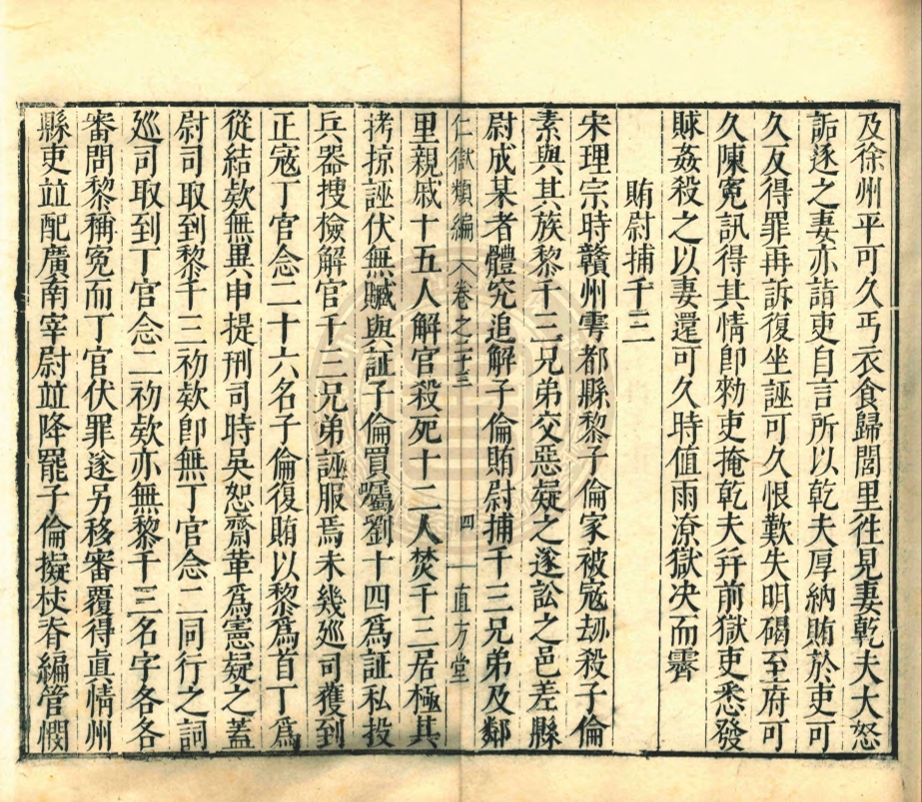 及徐州平可久丐衣食歸閭里徃見妻乾夫大怒
詬逐之妻亦詣吏自言所以乾夫厚納賄於吏可
久反得罪再訴復坐誣可久恨歎失明碣至府可
久陳寃訊得其情卽勑吏掩乾夫幷前獄吏悉發
賕姦殺之以妻還可久時値雨潦獄决而霽
賄尉捕千三
宋理宗時贛州雩都縣黎子倫家被宼刼殺子倫
素與其族黎千三兄弟交惡疑之遂訟之邑差縣
尉成某者體究追解子倫賄尉捕千三兄弟及鄰
仁獄類編 卷之二十三 四 直方堂
里親戚十五人解官殺死十二人焚千三居極其
拷掠誣伏無贓與証子倫買囑劉十四爲証私投
兵器搜檢解官千三兄弟誣服焉未幾廵司獲到
正宼丁官念二十六名子倫復賄以黎爲首丁爲
從結欵無異申提刑司時吳恕齋革爲憲疑之蓋
尉司取到黎千三初欵卽無丁官念二同行之詞
廵司取到丁官念二初欵亦無黎千三名字各各
審問黎稱寃而丁官伏罪遂另移審覆得眞情州
縣吏竝配廣南宰尉竝降罷子倫擬杖脊編管憫